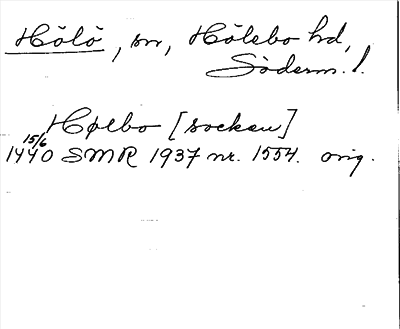 Hölö, sn, Hölebo hd,
Söderm. l.
Hølbo [socken]
15/6
1440 SMR 1937 nr. 1554. orig.